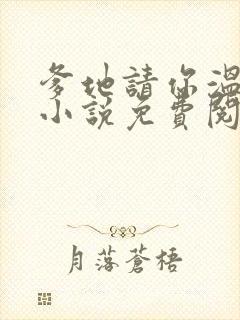 爹地請你溫
小說免費閱
月落蒼梧